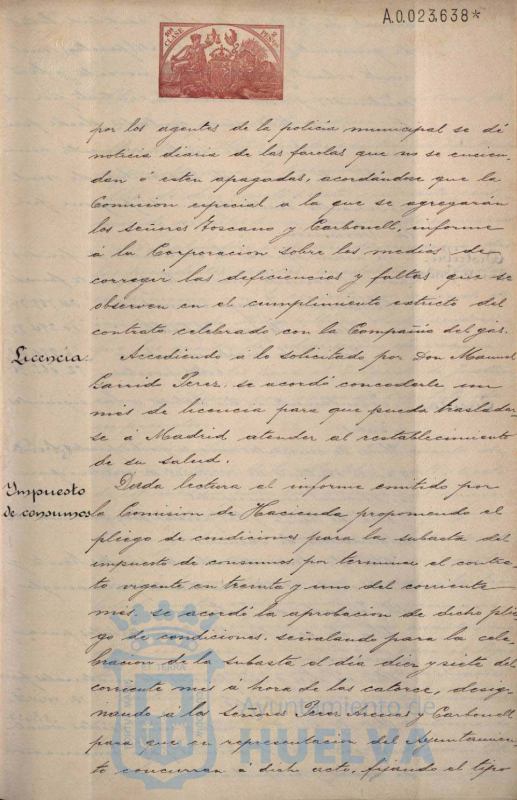 A.0.023,638*
CLASE
PESETAS
por los agentes de la policía municipal se dé
noticia diaria de las farolas que no se encien-
dan ó esten apagadas, acordándose que la
Comision especial á la que se agregarán
los señores Toscano y Carbonell, informe
á la Corporacion sobre los medios de
corregir las deficiencias y faltas que se
observen en el cumplimiento estricto del
contrato celebrado con la Compañia del gas.
Licencia.
Accediendo á lo solicitado por Don Manuel
Garrido Perez, se acordó concederle un
mes de licencia para que pueda traslada-
se á Madrid atender al restablecimiento
de su salud.
Impuesto
de consumos
Dada lectura al informe emitido por
la Comision de Hacienda proponiendo el
pliego de condiciones para la subasta del
impuesto de consumos por terminar el contra-
to vigente en treinta y uno del corriente
mes, se acordó la aprobacion de dicho plie-
go de condiciones, señalando para la cele-
bracion de la subasta el día diez y siete del
corriente mes á hora de las catorce, desig-
nando á los señores Perez y Carbonell
para que en representacion del Ayuntamien-
to concurran á dicho acto, fijando el tipo
Ayuntamiento de
HUELVA